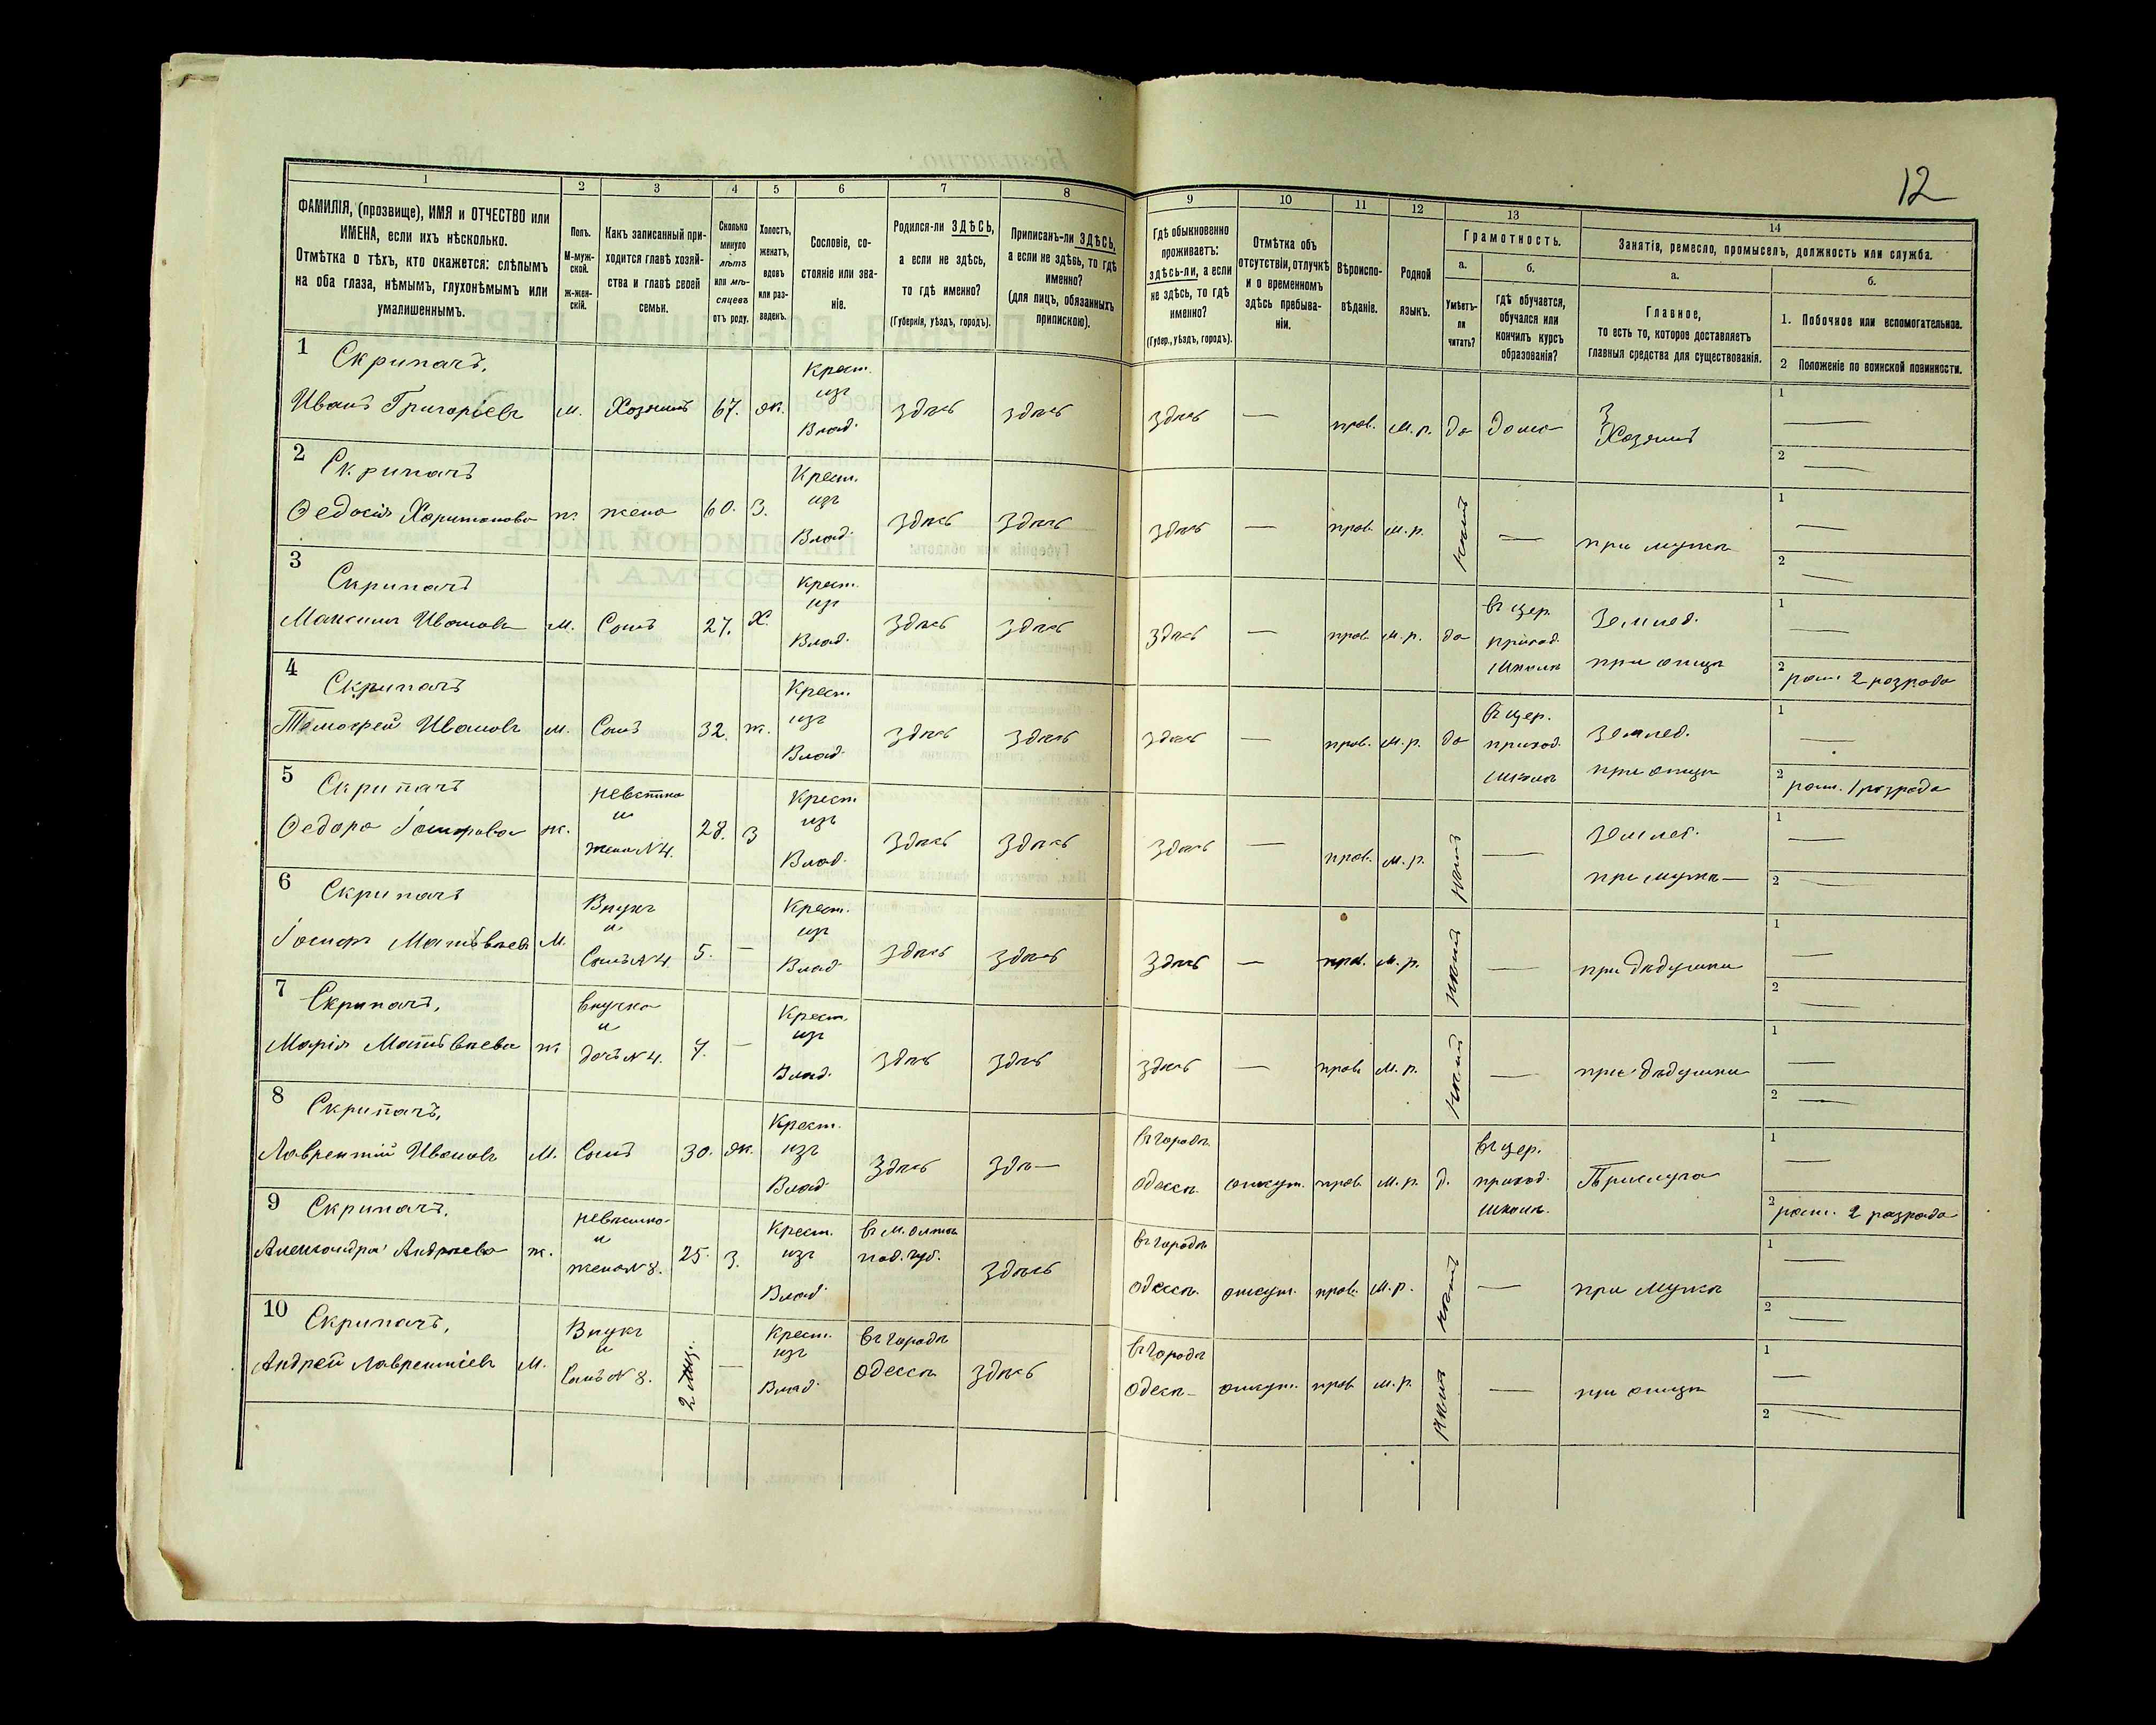 12
1 2 3 4 5 6 7 8 9 10 11 12 13 14
ФАМИЛІЯ, (прозвище), ИМЯ и ОТЧЕСТВО или
ИМЕНА, если ихъ нѣсколько.
Отмѣтка о тѣхъ, кто окажется: слѣпымъ
на оба глаза, нѣмымъ, глухонѣмымъ или
умалишеннымъ.
Полъ.
М-муж-
ской.
Ж-жен-
скій.
Какъ записанный при-
ходится главѣ хозяй-
ства и главѣ своей
семьи.
Сколько
минуло
лѣтъ
или мѣ-
сяцевъ
отъ роду.
Холостъ,
женатъ,
вдовъ
или раз-
веденъ.
Сословіе, со-
стояніе или зва-
ніе.
Родился-ли ЗДѢСЬ,
а если не здѣсь,
то гдѣ именно?
(Губернія, уѣздъ, городъ).
Приписанъ-ли ЗДѢСЬ,
а если не здѣсь, то гдѣ
именно?
(для лицъ, обязанныхъ
припискою).
Гдѣ обыкновенно
проживаетъ:
здѣсь-ли, а если
не здѣсь, то гдѣ
именно?
(Губер., уѣздъ, городъ).
Отмѣтка объ
отсутствіи, отлучкѣ
и о временномъ
здѣсь пребыва-
ніи.
Вѣроиспо-
вѣданіе.
Родной
языкъ.
Грамотность.
а.
Умѣетъ-
ли
читать?
б.
Гдѣ обучается,
обучался или
кончилъ курсъ
образованія?
Занятія, ремесло, промыселъ, должность или служба.
а.
Главное,
то есть то, которое доставляетъ
главныя средства для существованія.
б.
1. Побочное или вспомогательное.
2 Положеніе по воинской повинности.
1 Скрипачъ, Крест. 1
изъ З
Иванъ Григоріевъ м. Хозяинъ 67. жн. Влад. здѣсь здѣсь здѣсь — прав. м.р. да дома Хозяинъ —
2 —
2 Скрипачъ Крест. 1
изъ
Ѳедосія Харитонова ж. жена 60. З. Влад. здѣсь здѣсь здѣсь — прав. м.р. нѣтъ — при мужѣ —
2 —
3 Скрипачъ Крест. въ цер. 1
изъ приход. Землед.
Максимъ Ивановъ м. Сынъ 27. Х. Влад. здѣсь здѣсь здѣсь — прав. м.р. да школѣ при отцѣ —
2 рат. 2 разряда
4 Скрипачъ Крест. въ цер. 1
изъ приход. Землед.
Ивановъ м. Сынъ 32. ж. Влад. здѣсь здѣсь здѣсь — прав. м.р. да школѣ при отцѣ —
2 рат. 1 разряда
5 Скрипачъ невѣстка Крест 1
и изъ Землед.
Ѳедора Іосифова ж. жена N4. 28. З Влад. здѣсь здѣсь здѣсь — прав. м.р. нѣтъ — при мужѣ —
2 —
6 Скрипачъ Внукъ Крест. 1
и изъ
Іосифъ Матвѣевъ М. Сынъ N4. 5. — Влад. здѣсь здѣсь здѣсь — прав. м.р. нѣтъ — при дѣдушки —
2 —
7 Скрипачъ, внучка Крест. 1
и изъ
Марія Матвѣева ж дочь N4. 7. — Влад. здѣсь здѣсь здѣсь — прав. м.р. нѣтъ — при дѣдушки —
2 —
8 Скрипачъ, Крест. въ городѣ въ цер. 1
изъ приход.
Лаврентій Ивановъ М. Сынъ 30. жн. Влад. здѣсь здѣ— Одессѣ отсут. прав. м.р. д. школѣ. Прислуга —
2 рат. 2 разряда
9 Скрипачъ, невѣстка Крест. въ м. под. губ. въ городѣ 1
и изъ
Александра Андреева ж. жена N8. 25. З. Влад. здѣсь Одессѣ. отсут. прав. м.р. нѣтъ — при мужѣ —
2 —
10 Скрипачъ, Внукъ Крест. въ городѣ въ городѣ 1
и изъ
Андрей Лаврентіевъ М. Сынъ N8. 2 мѣц. — Влад. Одессѣ здѣсь Одесѣ— отсут. прав. м.р. нѣтъ — при отцѣ —
2 —